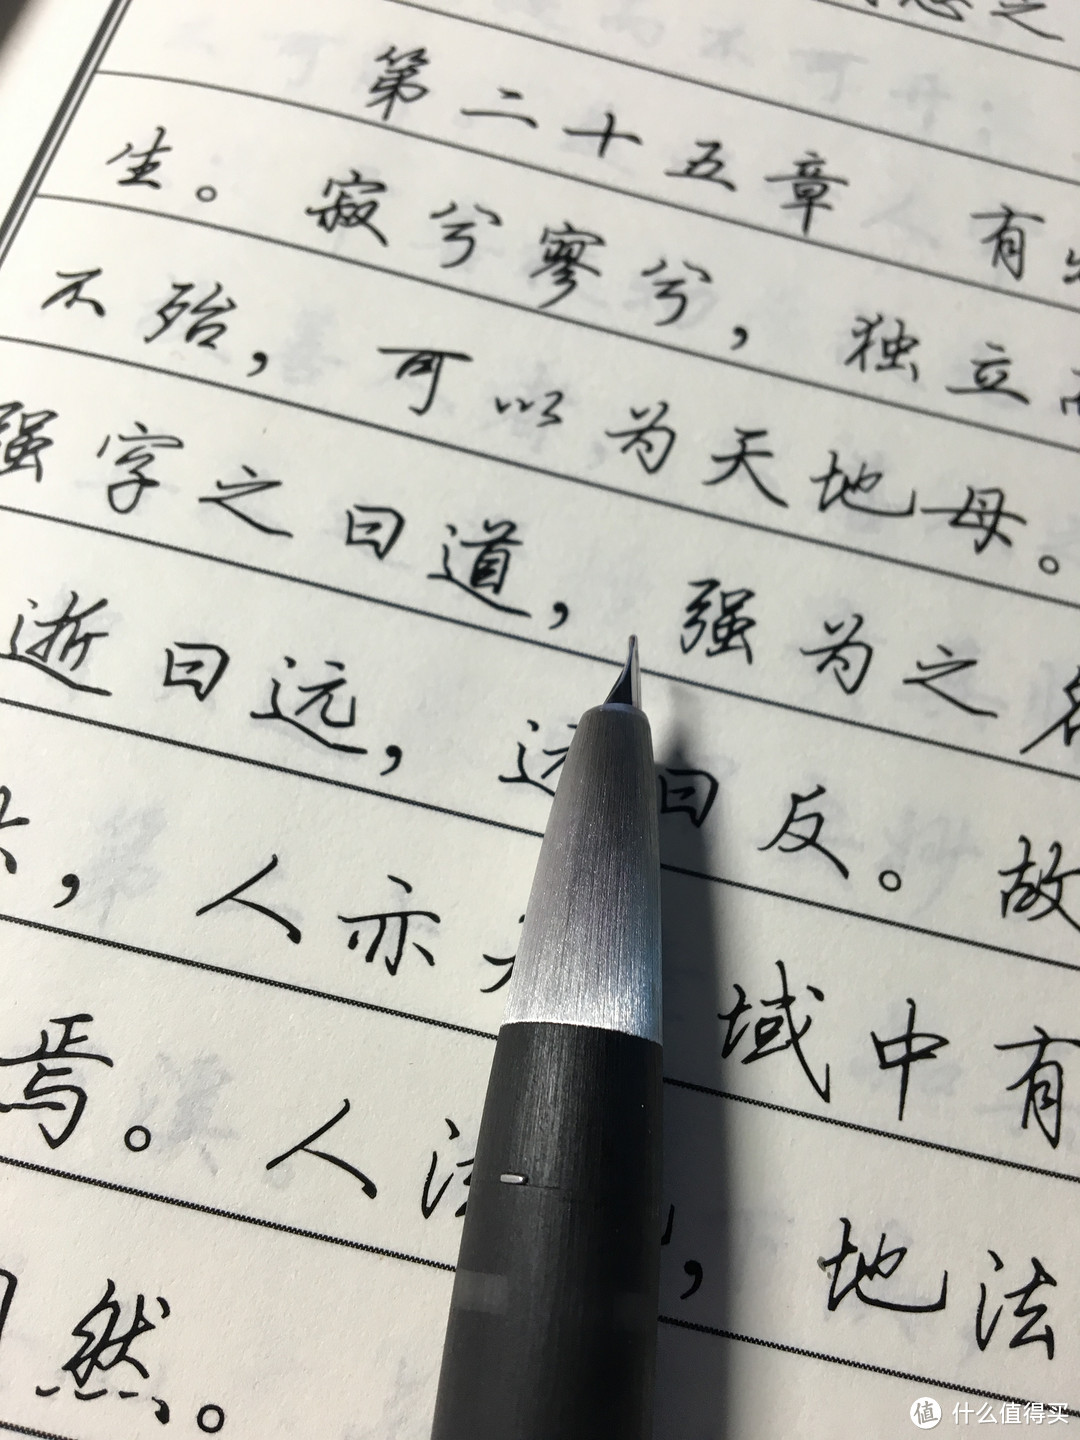 之
第二十五章 有
生。寂兮寥兮，独立
不殆，可以为天地母。
强字之曰道，强为之名
逝曰远，远曰反。故
，人亦 域中有
焉。人法 ，地法
然。
什么值得买